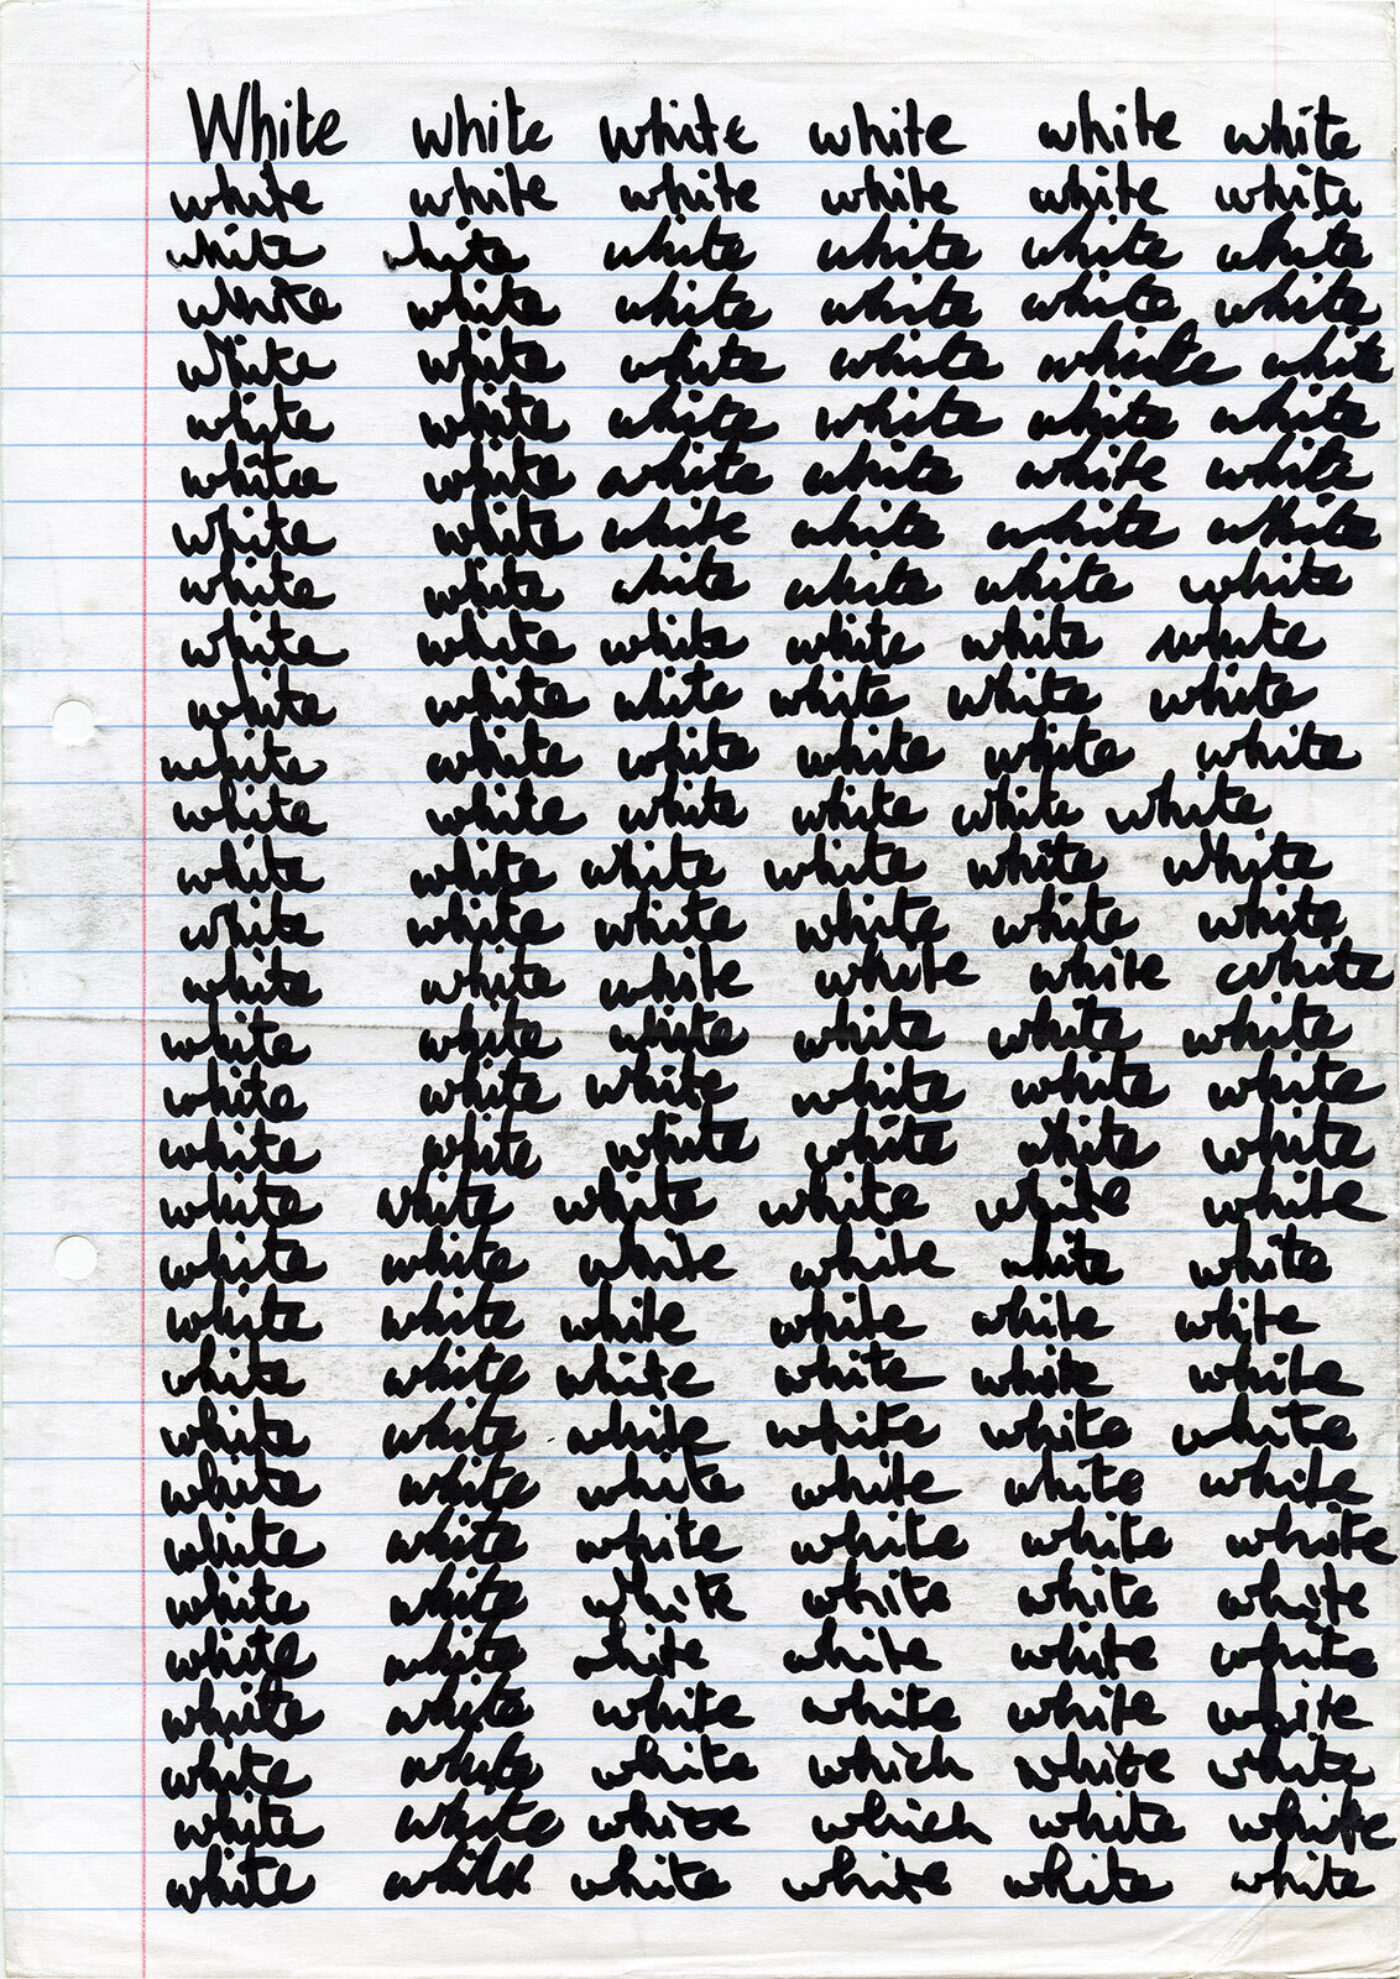 White white white white white white
white white white white white white
white white white white white white
white white white white white white
white white white white white white
white white white white white white
white white white white white white
white white white white white white
white white white white white white
white white white white white white
white white white white white white
white white white white white white
white white white white white white
white white white white white white
white white white white white white
white white white white white white
white white white white white white
white white white white white white
white white white white white white
white white white white white white
white white white white white white
white white white white white white
white white white white white white
white white white white white white
white white white white white white
white white white white white white
white white white white white white
white white white white white white
white white white white white white
white white white which white white
white white white which white white
white white white white white